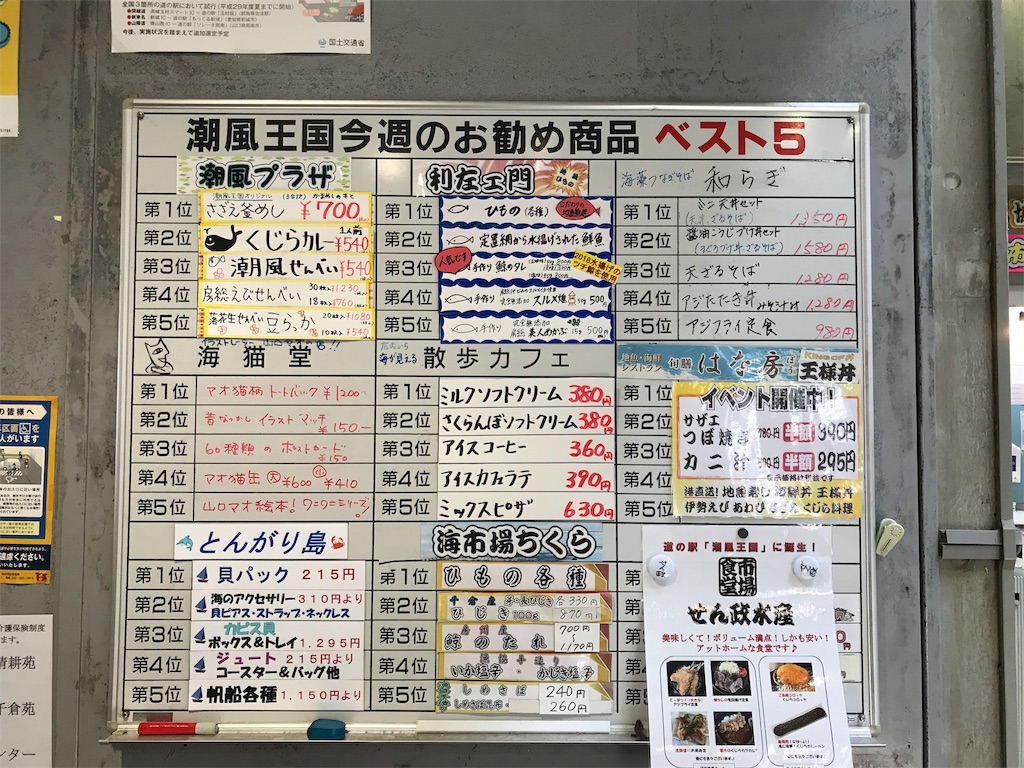 全国3箇所の道の駅において試行(平成29年度夏までに開始)
今後、実施状況を踏まえて追加選定予定
国土交通省
潮風王国今週のお勧め商品 ベスト5
潮風プラザ
潮風王国オリジナル
第1位 さざえ釜めし ¥700
第2位 くじらカレー 1人前 ¥540
第3位 潮風せんべい ¥540
第4位 房総えびせんべい 30枚入 ¥1230
18枚入 ¥760
第5位 落花生せんべい 豆らっか 20枚入 ¥1080
10枚入 ¥540
利左ヱ門
ひもの
第1位 ひもの(各種)
第2位 定置網から水揚げされた鮮魚
人気です
第3位 手作り 鯨のタレ
2018水揚げの
ツチ鯨を使用
第4位 手作り 完全無添加 スルメ燻 500円
第5位 手作り 完全無添加 房総 美人めかぶ 500円
海藻つなぎそば 和らぎ
第1位 ミニ天丼セット
(天丼、ざるそば)
第2位 醤油こうじづけ丼セット 1580円
第3位 天ざるそば 1280円
第4位 アジたたき丼 みそ汁付 1280円
第5位 アジフライ定食 980円
海猫堂
第1位 マオ猫柄トートバック ¥1200
第2位 昔なつかしイラストマッチ
¥150
第3位 60種類のポストカード
¥150
第4位 マオ猫缶 大 ¥600 小 ¥410
第5位 山口マオ絵本!ワニワニシリーズ
海が見える 散歩カフェ
第1位 ミルクソフトクリーム 380円
第2位 さくらんぼソフトクリーム 380円
第3位 アイスコーヒー 360円
第4位 アイスカフェラテ 390円
第5位 ミックスピザ 630円
地魚・海鮮
レストラン 旬膳 はな房
KING OF 丼
王様丼
第1位
第2位
第3位
第4位
第5位
イベント開催中!
サザエ
つぼ焼き 780円 半額 390円
カニ汁 半額 295円
港直送! 地魚寿し 海鮮丼 王様丼
伊勢えび あわび さざえ くじら料理
とんがり島
第1位 貝パック 215円
第2位 海のアクセサリー 310円より
貝ピアス・ストラップ・ネックレス
第3位 カピス貝
ボックス&トレイ 1,295円
第4位 ジュート 215円より
コースター&バッグ他
第5位 帆船各種 1,150円より
海市場ちくら
第1位 ひもの各種
第2位 千倉産 芽・長ひじき 各330円
ひじき 100g 870円
第3位 房州産
鯨のたれ 700円
1170円
第4位 いか塩辛・かじき塩辛
第5位 しめさば 240円
260円
道の駅「潮風王国」に誕生!
市場食堂
せん政水産
美味しくて!ボリューム満点!しかも安い!
アットホームな食堂です♪